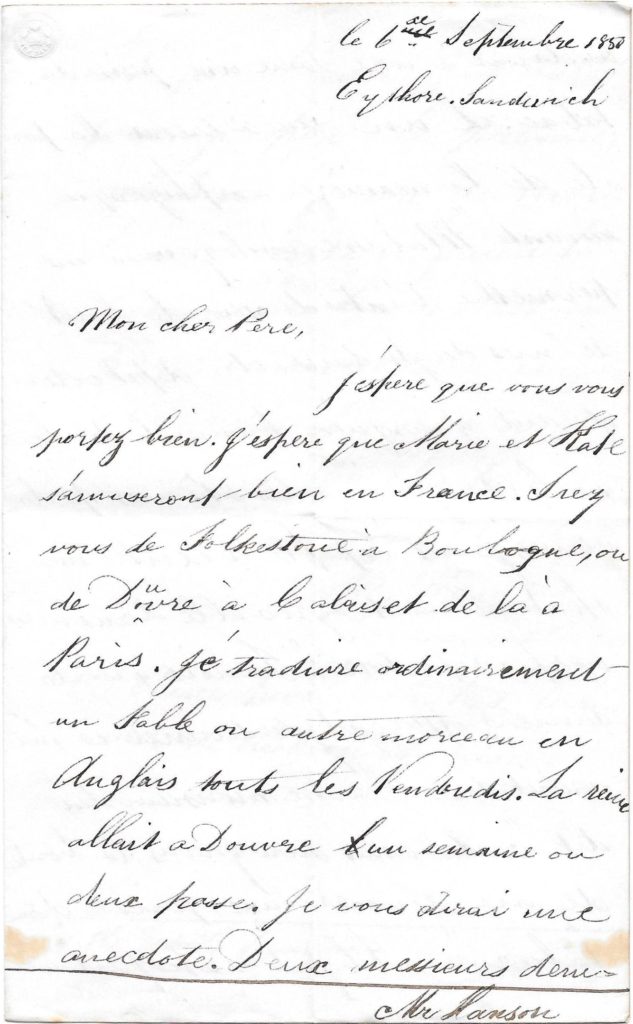 le 6me Septembre 1850
Eythore. Sandwich
Mon cher Pere,
J'éspere que vous vous
portez bien. J'éspere que Marie et Kate
s'amuseront bien en France. Irez
vous de Folkestone à Boulogne, ou
de Douvre à Calais et de là à
Paris. Je traduire ordinairement
un Fable ou autre morceau en
Anglais touts les Vendredis. La reine
allait a Douvre un semaine ou
deux passe. Je vous dirai une
anecdote. Deux messieurs deme-
Mr Hanson